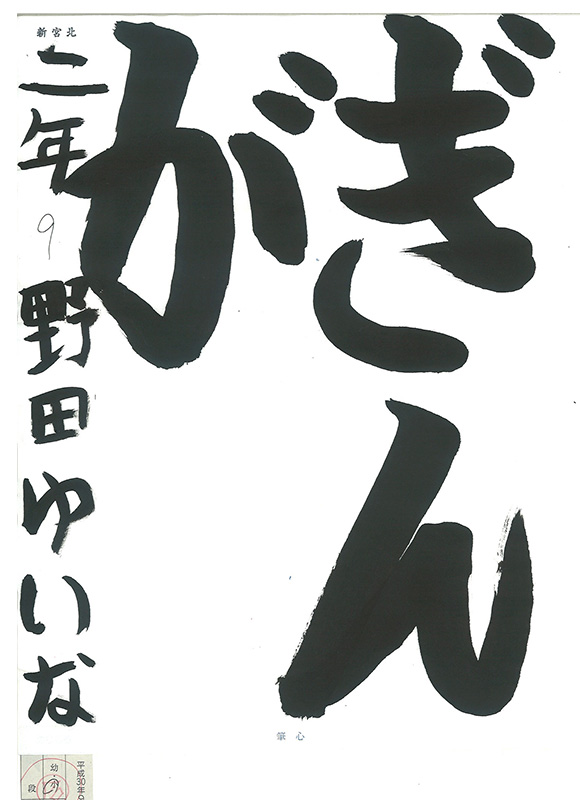 ぎん
が
二年 9 野田ゆいな
新宮北
心筆
平成30年9
幼・小
段